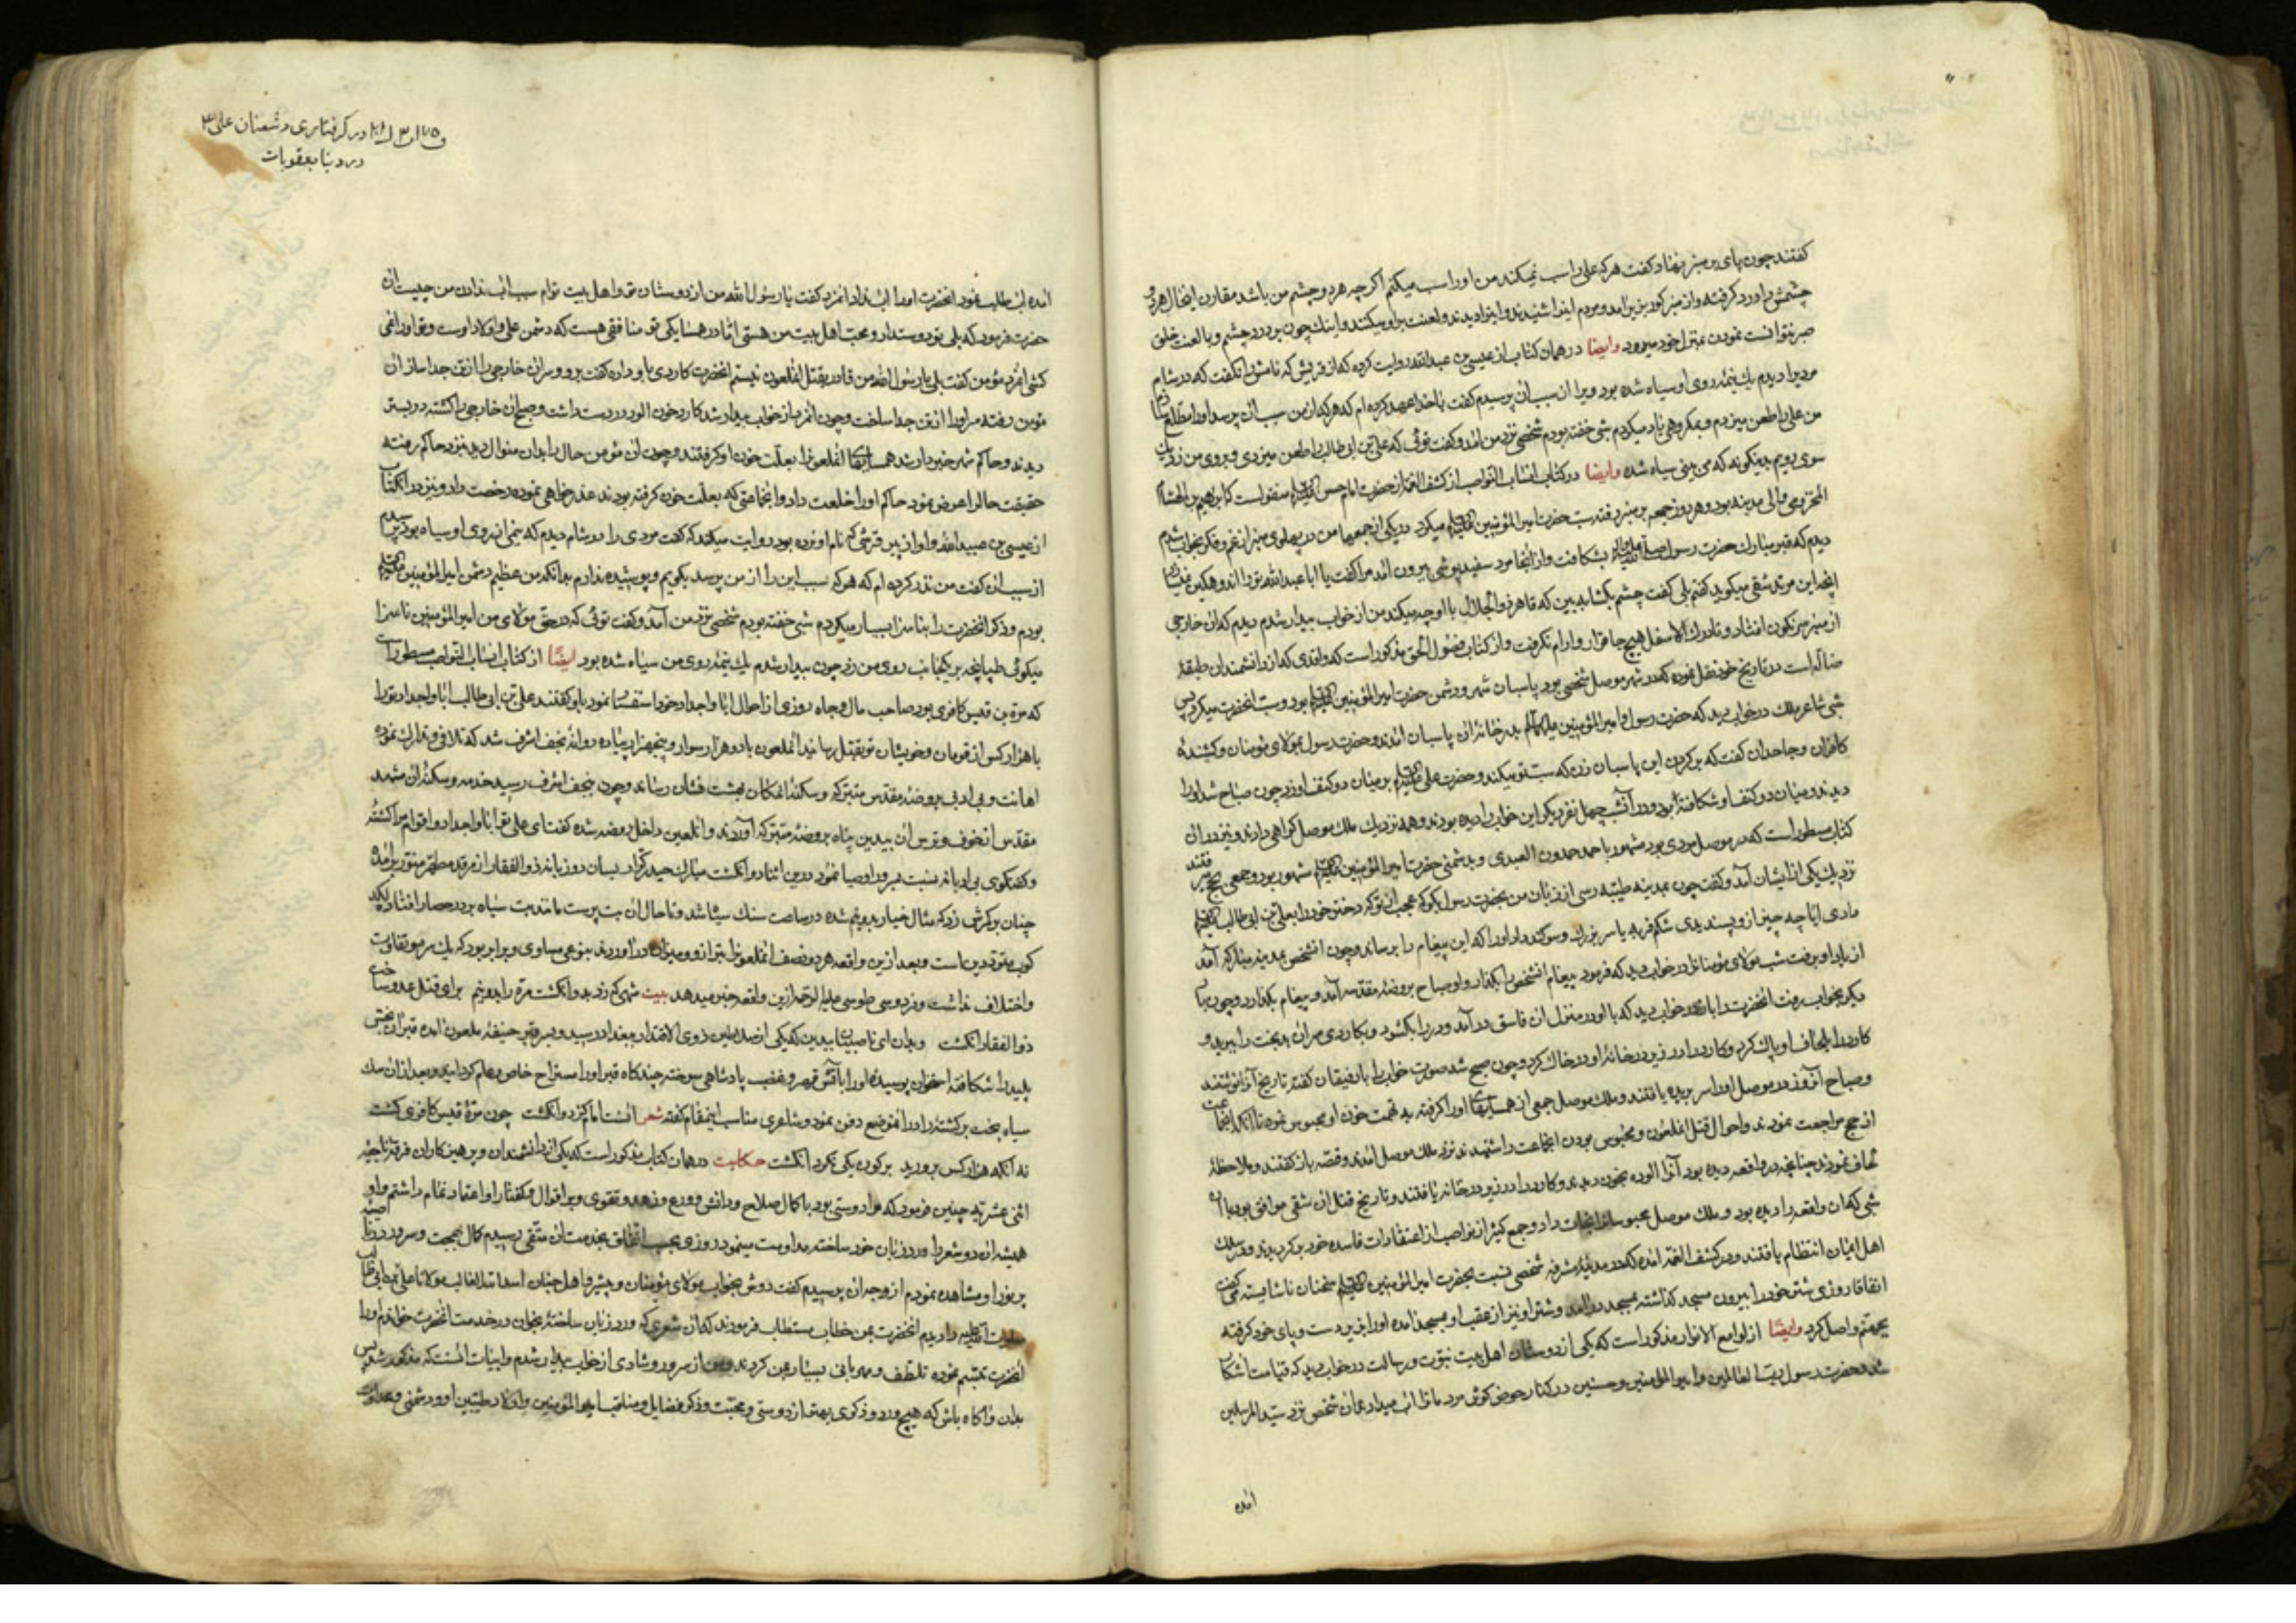 گفتند چون پای بر منبر نهاد گفت هر که علی را سب نمیکند من او را سب میکنم اگر چه هر دو چشم من باشد مقارن اینحال هر دو
چشمش را درد گرفته و از منبر کور بزیر آمد و مردم اینرا شنیدند و اینرا دیدند و لعنت بر او میکنند و اینک چون بر درد چشم و بالعنت خلق
صبر نتوانست نمودن بمنزل خود میرود وایضا در همان کتاب از عیسی بن عبدالله روایت کرده که از قریش که نامش را نگفت که در شام
مردیرا دیدم یک نیمهٔ روی او سیاه شده بود ویرا از سبب آن پرسیدم گفت با خدا عهد کرده ام که هر که از من سبب آن پرسد او را مطلع
من علی را طعن میزدم و بمکروهی یاد میکردم شبی خفته بودم شخصی نزد من آمد و گفت توئی که علی بن ابی طالب را طعن میزدی و بروی من زد یک
سوی رویم بدینگونه که می بینی سیاه شده وایضا در کتاب انساب النواصب از کشف الغمه از حضرت امام حسن منقولست که ابراهیم بن هشام
المخزومی والی مدینه بود و هر روز جمعه بر منبر رفته سب حضرت امیر المؤمنین میکرد در یکی از جمعها من در پهلوی منبر از غم و فکر بخواب شدم
دیدم که قبر مبارک حضرت رسول بشکافت و از آنجا مرد سفید پوشی بیرون آمد مرا گفت یا ابا عبدالله تو را اندوهگین
آنچه این مرتد شقی میگوید گفتم بلی گفت چشم بگشا ببین که قاهر ذوالجلال با او چه میکند من از خواب بیدار شدم دیدم که آن خارجی
از منبر سرنگون افتاد و تا درک الاسفل هیچ جا قرار و آرام نگرفت و از کتاب فصول الحق مذکور است که واقدی که از دانشمندان طبقهٔ
ضاله است در تاریخ خود نقل نموده که در شهر موصل شخصی بود پاسبان شهر و دشمن حضرت امیر المؤمنین بود و سب آنحضرت میکرد پس
شبی شاعر ملک در خواب دید که حضرت رسول و امیر المؤمنین بدر خانه آن پاسبان آمدند و حضرت رسول بمولای مؤمنان و کشندهٔ
کافران و جاحدان گفت که بر گردن این پاسبان زن که سب تو میکند و حضرت علی بر میان دو کتف او زد چون صباح شد او را
دیدند و میان دو کتف او شکافته بود و در آن شب چهل نفر دیگر این خواب را دیده بودند و همه نزدیک ملک موصل گواهی دادند و نیز در آن
کتاب مسطور است که در موصل مردی بود مشهور باحمد حمدون العبدی و بدشمنی حضرت امیر المؤمنین مشهور بود و جمعی بحج میرفتند
نزدیک یکی از ایشان آمد و گفت چون بمدینه طیبه رسی از زبان من بحضرت رسول بگو که عجب از تو که دختر خود را بعلی بن ابی طالب
دادی آیا چه چیز از و پسندیدی شکم فربه یا سر بزرگ و سوگند داد او را که این پیغام را برساند و چون آنشخص بمدینه مبارکه آمد
از یاد او برفت شب مولای مؤمنانرا در خواب دید که فرمود پیغام آنشخص را بگذار و او صباح بروضهٔ مقدسه آمد و پیغام بگذارد و چون بار
دیگر بخواب رفت آنحضرت را باز در خواب دید که با او در منزل آن فاسق در آمد و در را بگشود و بکاردی سر آن بدبخت را ببرید و
کارد را بلحاف او پاک کرد و کارد را در زیر در خانهٔ او در خاک کرد و چون صبح شد صورت خواب را با رفیقان گفته تاریخ آنرا نوشتند
و صباح آنروز در موصل او را سر بریده یافتند و ملک موصل جمعی از همسایهای او را گرفته به تهمت خون او محبوس نمود تا آنکه آنجماعت
از حج مراجعت نمودند و احوال قتل آنملعون و محبوس بودن آنجماعت را شنیدند نزد ملک موصل آمدند و قصه باز گفتند و ملاحظهٔ
لحاف نمودند چنانچه در واقعه دیده بود آنرا آلوده بخون دیدند و کارد را در زیر در خانه یافتند و تاریخ قتل آن شقی موافق بود با آن
شبی که آن واقعه را دیده بود و ملک موصل محبوسانرا نجات داد و جمع کثیر از نواصب از اعتقادات فاسده خود برگردیدند و در سلک
اهل ایمان انتظام یافتند و در کشف الغمه آمده که در مدینهٔ مشرفه شخصی نسبت بحضرت امیر المؤمنین سخنان ناشایسته می گفت
اتفاقا روزی شتر خود را بیرون مسجد گذاشته بمسجد در آمد و شتر او نیز از عقب او بمسجد آمده او را بزیر دست و پای خود گرفته
بجهنم واصل کرد وایضًا از لوامع الانوار مذکور است که یکی از دوستان اهل بیت نبوت و رسالت در خواب دید که قیامت آشکار
شد و حضرت رسول رب العالمین و امیر المؤمنین و حسنین در کنار حوض کوثر مردمانرا آب میداد همان شخص نزد سید المرسلین
آمده
در گرفتاری دشمنان علی ع
در دنیا بعقوبات
آمده آب طلب نمود آنحضرت او را آب نداد آنمرد گفت یا رسول الله من از دوستان تو و اهل بیت توام سبب آب ندادن من چیست آن
حضرت فرمود که بلی تو دوستدار و محب اهل بیت من هستی اما در همسایکی تو منافقی هست که دشمن علی و اولاد اوست و تو او را نمی
کشی آنمرد مؤمن گفت بلی یا رسول الله من قادر بقتل آنملعون نیستم آنحضرت کاردی باو داده گفت برو و سر آن خارجی را از تن جدا ساز آن
مؤمن رفته سر او را از تن جدا ساخت و چون آنمرد از خواب بیدار شد کارد خون آلود در دست داشت و صبح آن خارجی را کشته در بستر
دیدند و حاکم شهر خبردار شد همسایهای آنملعونرا بعلت خون او گرفتند و چون آن مؤمن حال را بدان منوال دید نزد حاکم رفته
حقیقت حال را عرض نمود حاکم او را خلعت داد و آنجماعتی که بعلت خون گرفته بودند عذر خواهی نموده رخصت داد و نیز در آنکتاب
از عیسی بن عبیدالله و او از پیر قرشی که نام او نبرده بود روایت میکند که گفت مردی را در شام دیدم که نیمی از روی او سیاه بود پرسیدم
از سبب آن گفت من نذر کرده ام که هر که سبب این را از من پرسد بگویم و پوشیده ندارم بدانکه من عظیم دشمن امیر المؤمنین
بودم و ذکر آنحضرت را بناسزا بسیار میکردم شبی خفته بودم شخصی نزد من آمد و گفت توئی که در حق مولای من امیر المؤمنین ناسزا
میگوئی طپانچه بر یکجانب روی من زد چون بیدار شدم یک نیمهٔ روی من سیاه شده بود ایضًا از کتاب انساب النواصب مسطور است
که مرة بن قیس کافری بود صاحب مال و جاه روزی از احوال آبا و اجداد خود استفسار نمود باو گفتند علی بن ابی طالب آبا و اجداد تو را
با هزار کس از قومان و خویشان تو بقتل رسانید آنملعون با دو هزار سوار و پنجهزار پیاده روانهٔ نجف اشرف شد که تلافی و تدارک نموده
اهانت و بی ادبی بروضهٔ مقدس متبرکه و سکنهٔ آنمکان بهشت نشان رساند و چون بنجف اشرف رسید خدمه و سکنهٔ آن مشهد
مقدس از خوف و ترس آن بیدین پناه بروضهٔ متبرکه آوردند و آنلعین داخل روضه شده گفت ای علی تو آبا و اجداد و اقوام مرا کشتهٔ
و گفتگوی بی ادبانه نسبت بسرور اوصیا نمود در این اثنا دو انگشت مبارک حیدر کرار بسان دو زبانه ذوالفقار از مرقد مطهر منور برآمده
چنان بر کمرش زد که مثال خیار بدو نیم شده در ساعت سنگ سیاه شد و تا حال آن بت پرست مانند بت سیاه بر در حصار افتاده لکد
کوب مترددین است و بعد از این واقعه هر دو نصف آنملعونرا بترازو و میزان در آوردند بنوعی مساوی و برابر بود که یک سر مو تفاوت
و اختلاف نداشت و فردوسی طوسی علیه الرحمه ازین واقعه خبر میدهد بیت شهی کم زد بدو انگشت مرّه را بدو نیم برای قتل عدو ساخت
ذوالفقار انگشت و بدان ای ناصبیان بیدین که یکی از سلاطین ذوی الاقتدار ببغداد رسید و بسر قبر حنیفهٔ ملعون آمده قبر آن نجس
پلید را شکافته استخوان پوسیده او را بآتش قهر و غضب پادشاهی سوخته چند گاه قبر او را مستراح خاص و عام گردانید و بعد از آن سگ
سیاه بخت برگشته را در آنموضع دفن نمود و شاعری مناسب اینمقام گفته شعر آنست امام کز دو انگشت چون مرهٔ قیس کافری کشت
نه آنکه هزار کس پرورید بر گور یکی نکرد انگشت حکایت در همان کتاب مذکور است که یکی از دانشمندان و پرهیز کاران فرقهٔ ناجیه
اثنی عشریه چنین فرمود که مرا دوستی بود با کمال صلاح و دانش و ورع و زهد و تقوی و بر اقوال و گفتار او اعتماد تمام داشتم و او
همیشه آن دو شعر را ورد زبان خود ساخته مداومت مینمود روزی بحسب اتفاق بخدمت آن متقی رسیدم کمال بهجت و سرور در ناصیه
پر نور او مشاهده نمودم از وجه آن پرسیدم گفت دوش بخواب مولای مؤمنان و پیشوا اهل جنان اسد الله الغالب مولانا علی بن ابی طالب
صلوات الله علیه را دیدم آنحضرت بمن خطاب مستطاب فرمودند که آن شعری که ورد زبان ساختهٔ بخوان در خدمت آنحضرت خواندم او را
آنحضرت تبسم نموده تلطف و مهربانی بسیار بمن کردند و من از سرور و شادی از خواب بیدار شدم و ابیات آنست که مذکور شد پس
بدان و آگاه باش که هیچ ورد و ذکری بهتر از دوستی و محبت و ذکر فضایل و مناقب امیر المؤمنین و اولاد طیبین او و دشمنی و عداوت